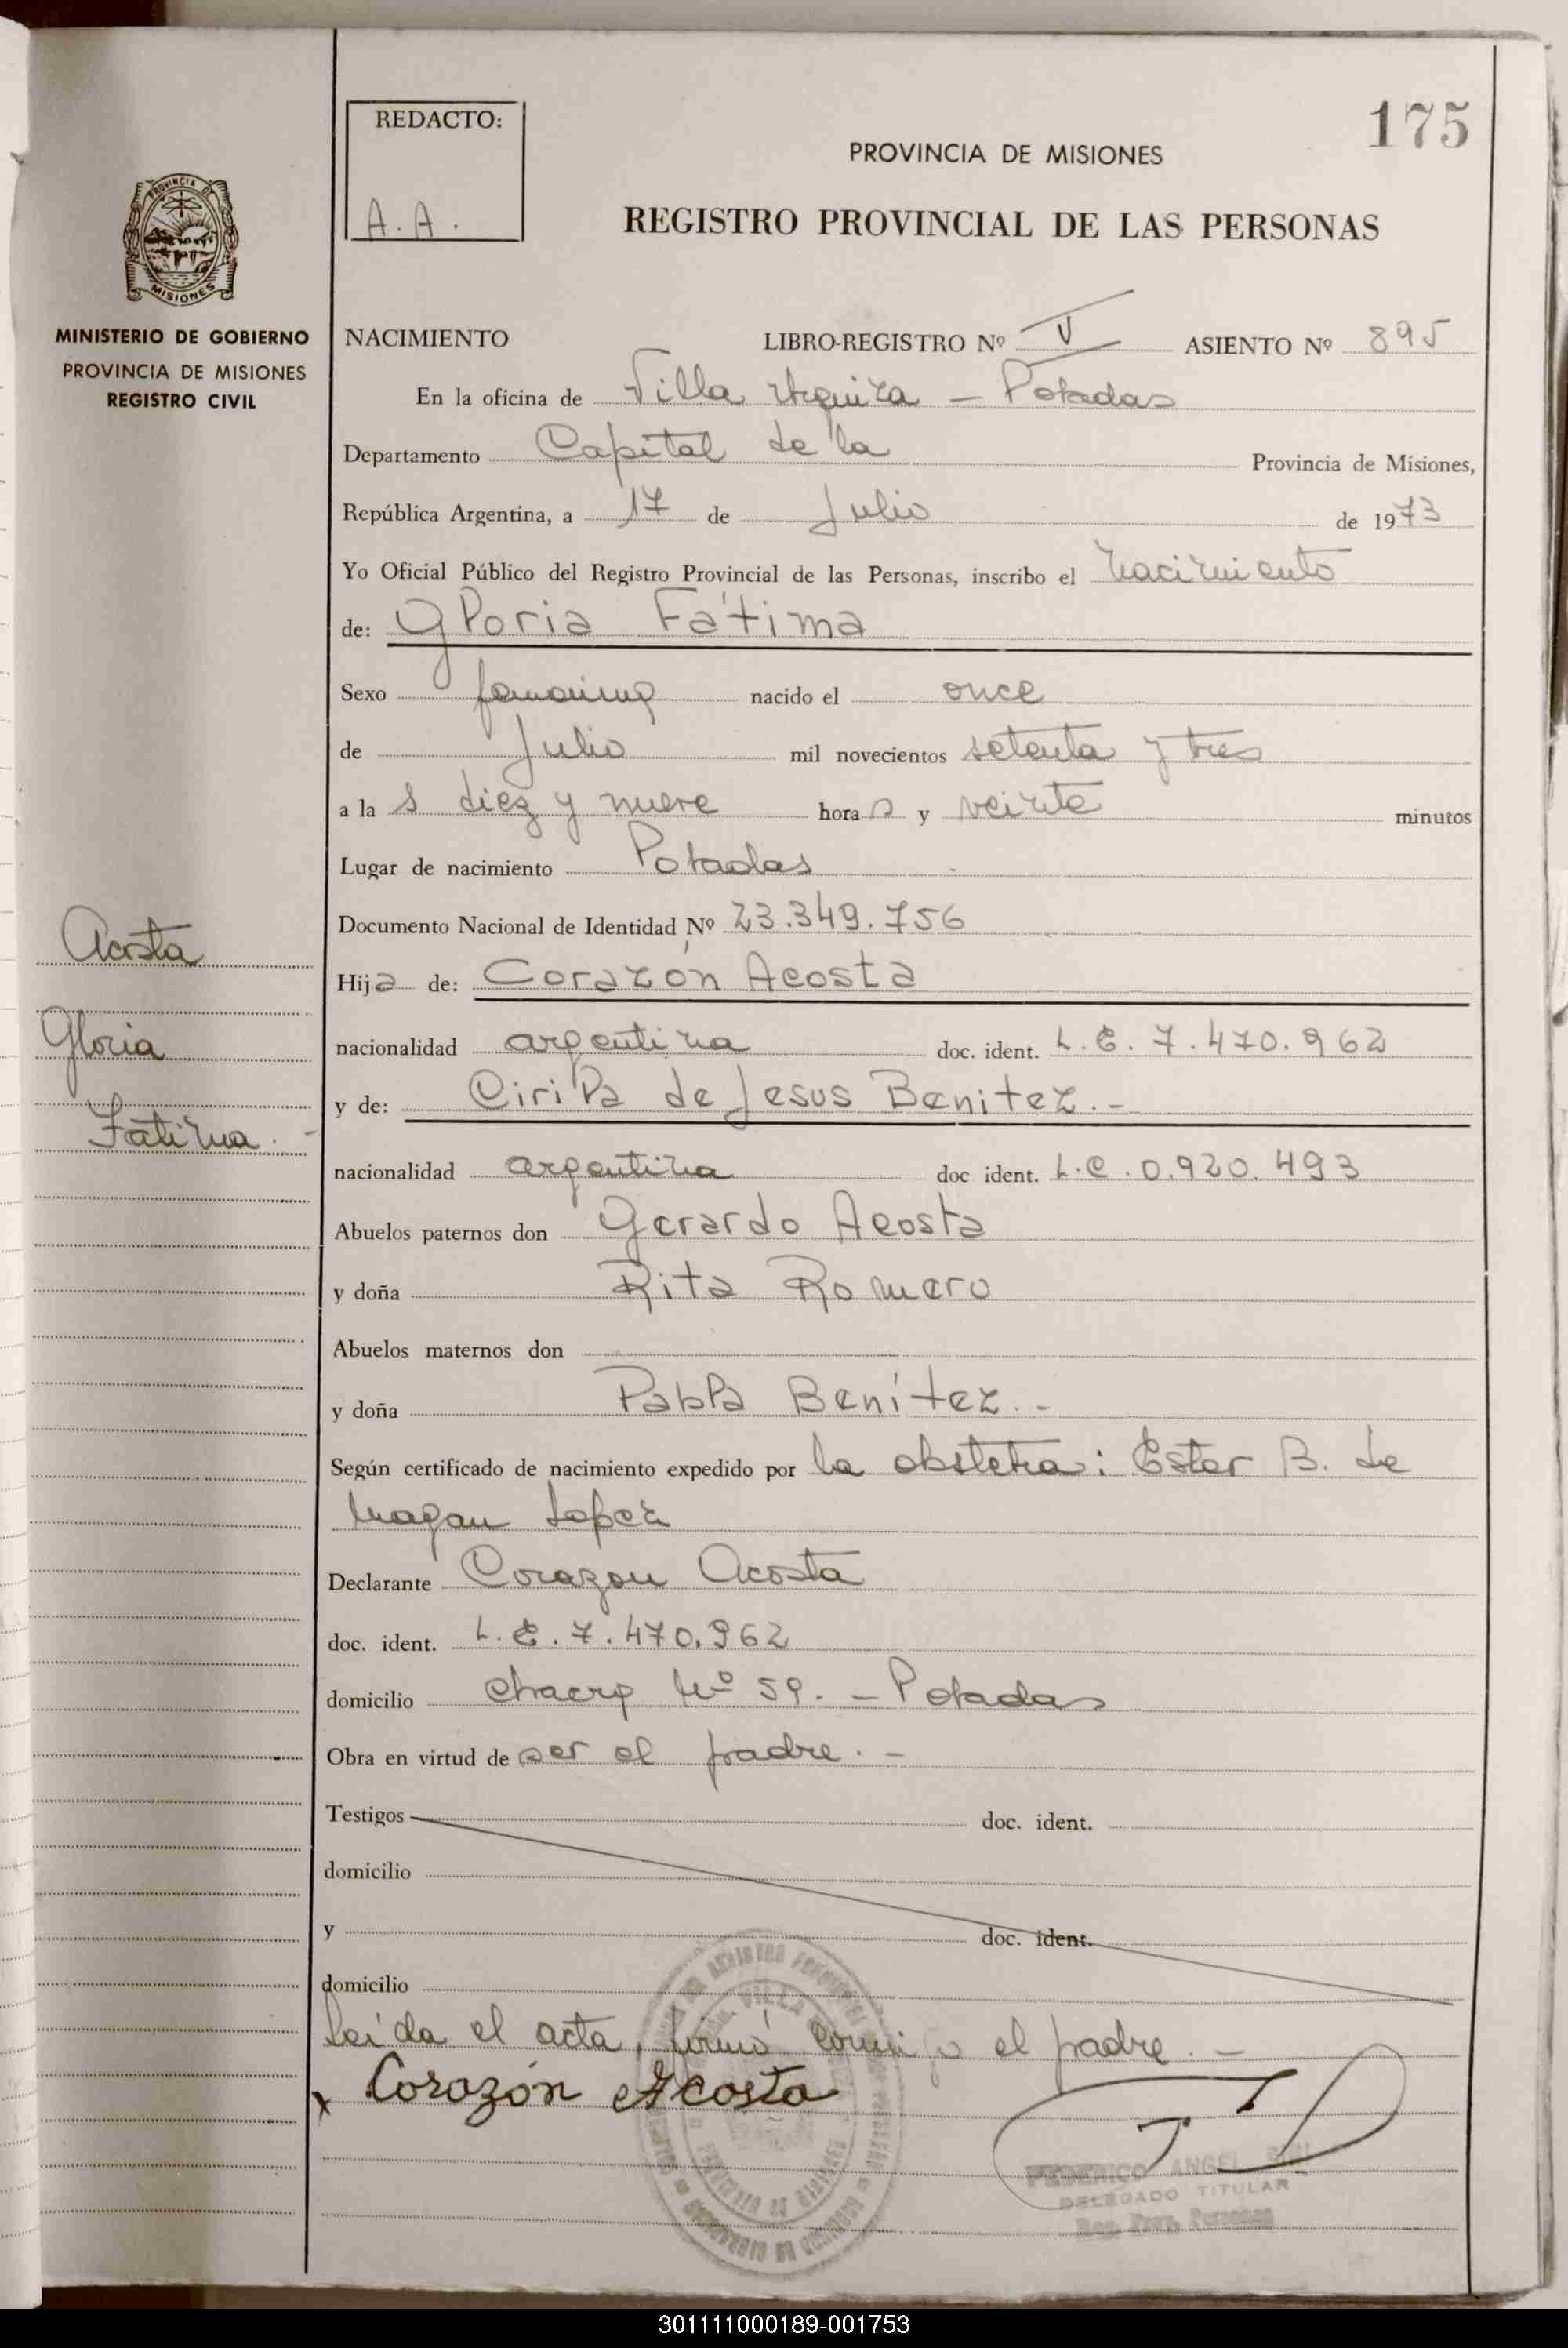 175
REDACTO:
A.A.
PROVINCIA DE MISIONES
REGISTRO PROVINCIAL DE LAS PERSONAS
PROVINCIA DE
MISIONES
MINISTERIO DE GOBIERNO
PROVINCIA DE MISIONES
REGISTRO CIVIL
NACIMIENTO LIBRO-REGISTRO Nº V ASIENTO Nº 895
En la oficina de Villa Urquiza - Posadas
Departamento Capital de la Provincia de Misiones,
República Argentina, a 17 de Julio de 1973
Yo Oficial Público del Registro Provincial de las Personas, inscribo el nacimiento
de: Gloria Fátima
Sexo femenino nacido el once
de Julio mil novecientos setenta y tres
a la s diez y nueve hora s y veinte minutos
Lugar de nacimiento Posadas
Documento Nacional de Identidad Nº 23.349.756
Hija de: Corazón Acosta
nacionalidad argentina doc. ident. L.E. 7.470.962
y de: Cirila de Jesus Benitez.-
nacionalidad argentina doc ident. L.C. 0.920.493
Abuelos paternos don Gerardo Acosta
y doña Rita Romero
Abuelos maternos don
y doña Pabla Benítez.-
Según certificado de nacimiento expedido por la obstetra: Ester B. de
Magan Lopez
Declarante Corazon Acosta
doc. ident. L.E. 7.470.962
domicilio chacra Nº 59. - Posadas
Obra en virtud de ser el padre.-
Testigos doc. ident.
domicilio
y doc. ident.
domicilio
Leída el acta, firmó conmigo el padre.-
x Corazón Acosta
Acosta
Gloria
Fatima.-
FEDERICO ANGEL
DELEGADO TITULAR
Reg. Prov. Personas
301111000189-001753